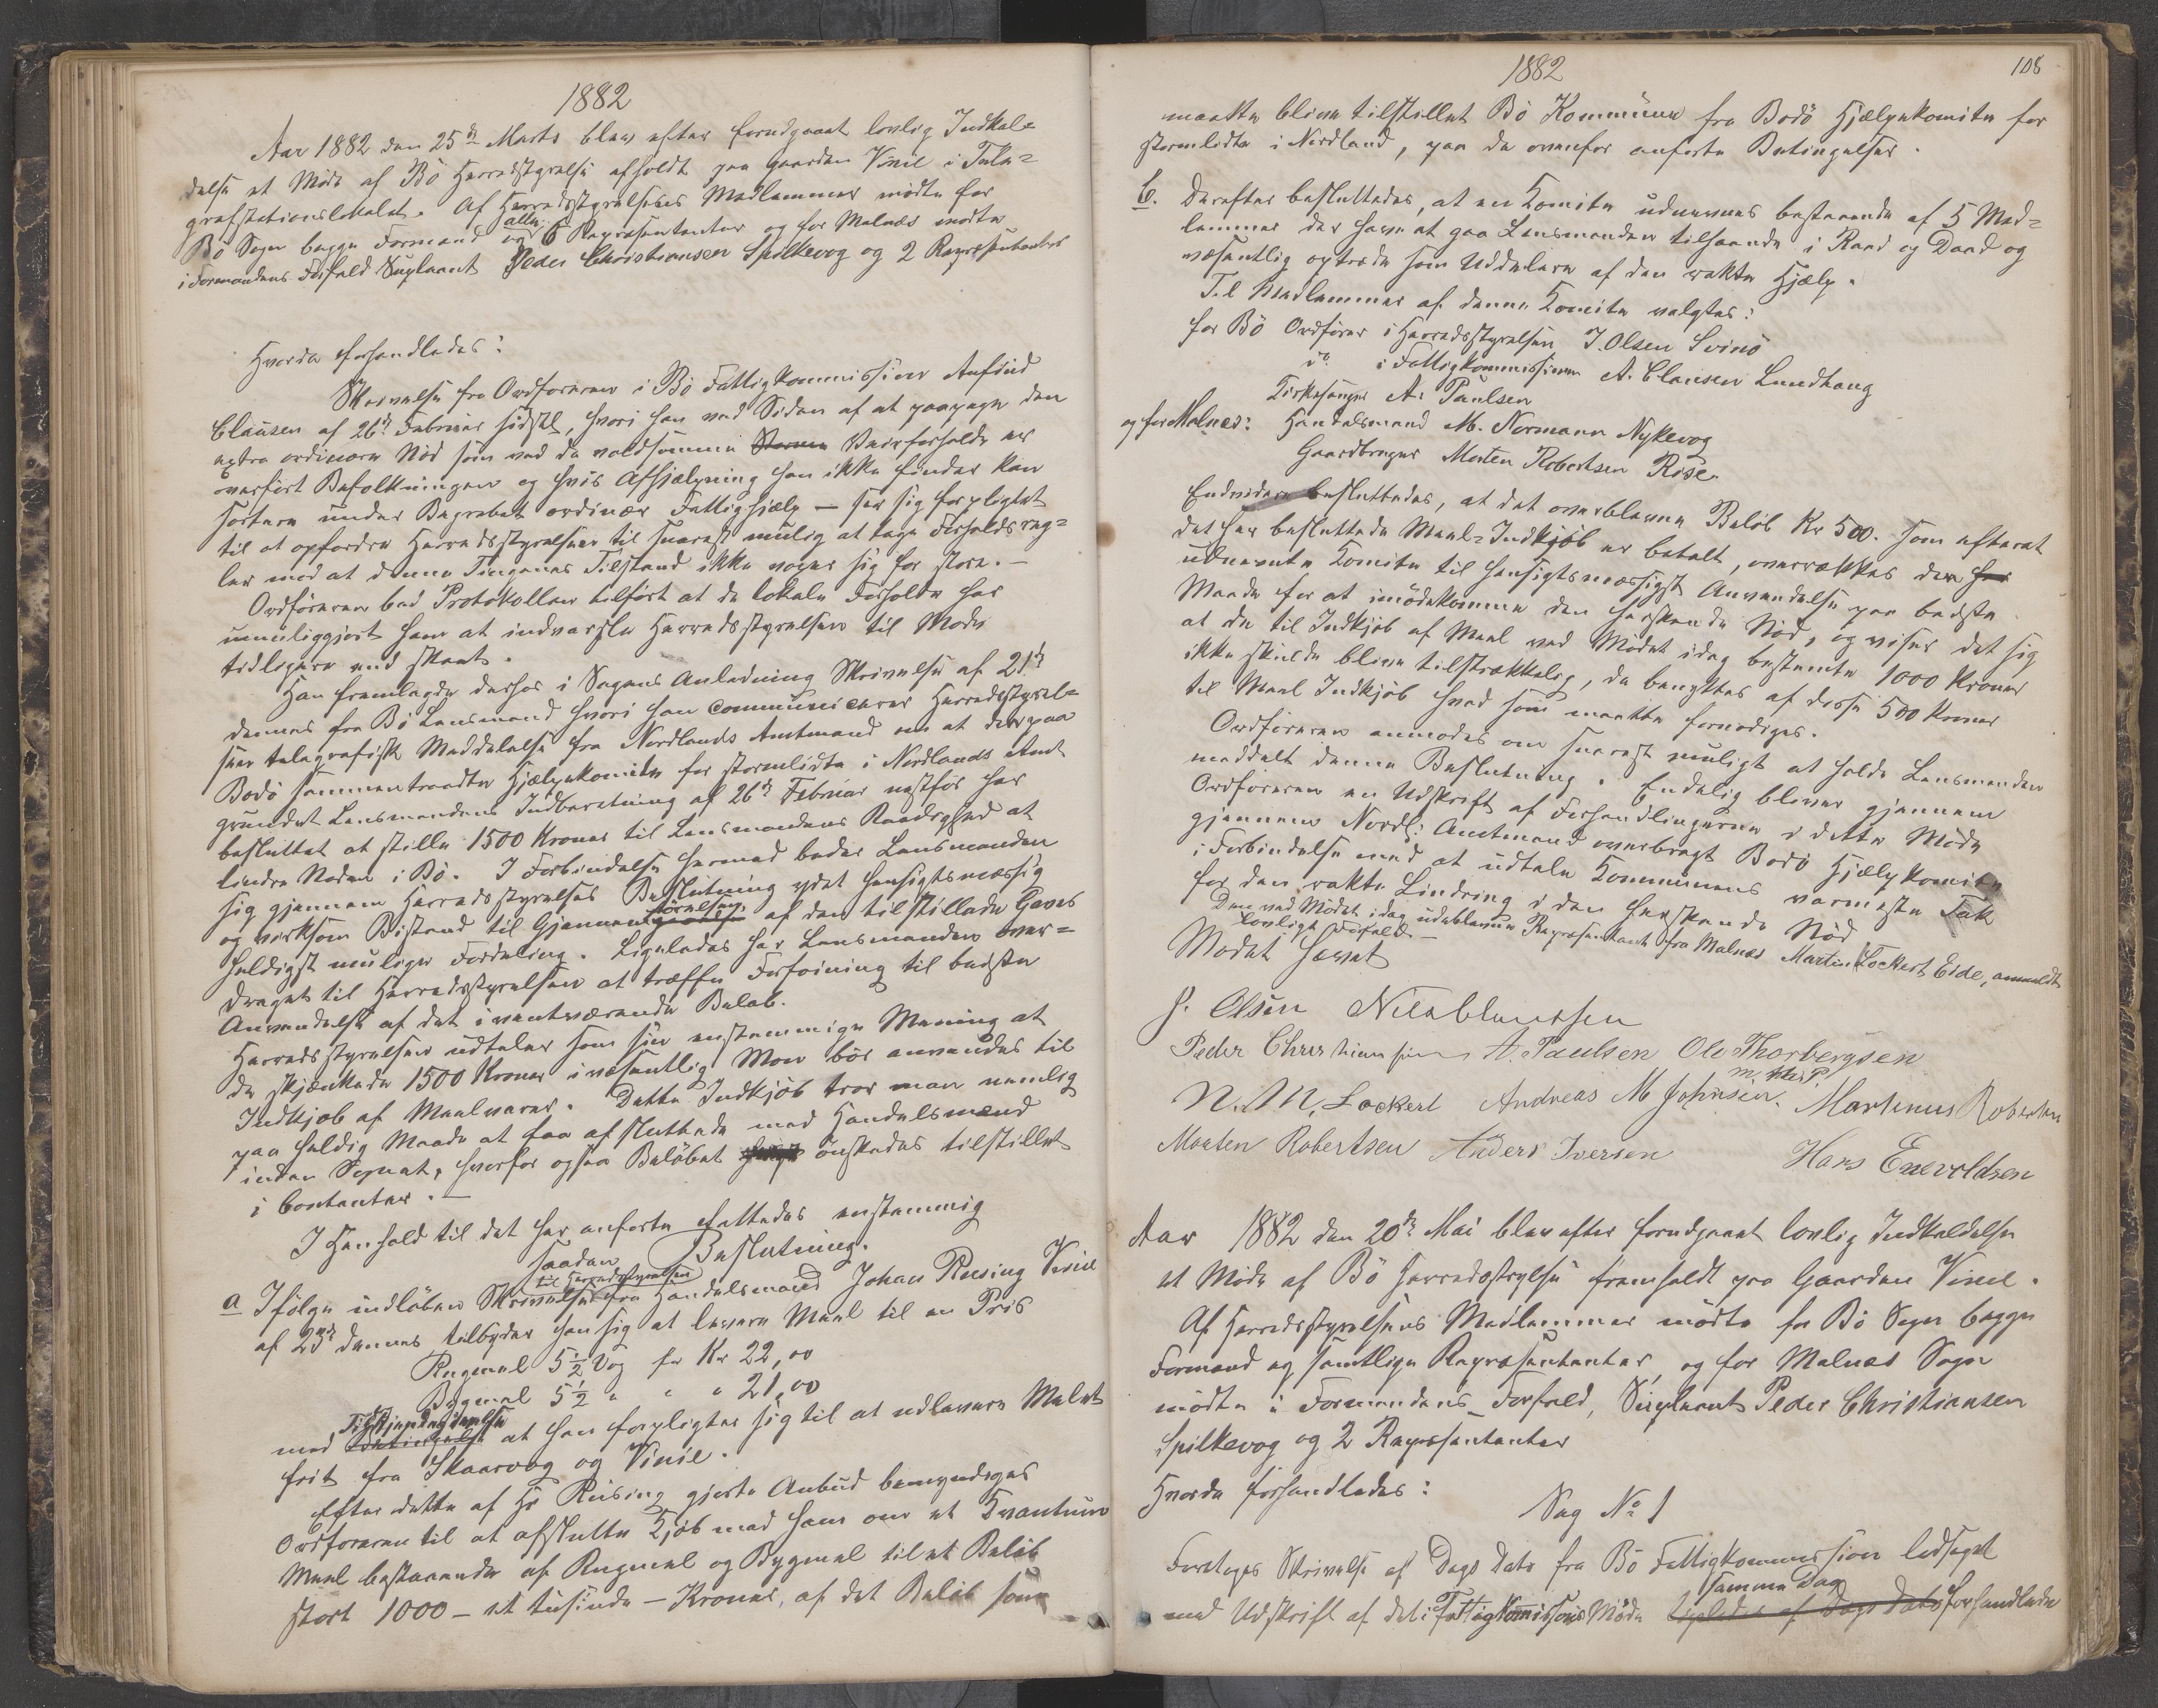 1882
Aar 1882 den 25de Marts blev efter forudgaaet lovlig Indkal=
delse et Møde af Bö Herredsstyrelse afholdt paa Gaarden Vinie i Tele=
grafstationslokalet. Af Herredsstyrelsens Medlemmer mødte for
Bö Sogn begge Formænd og alle 6 Repræsentanter og for Malnæs mødte
i Formandens Forfald Supleant Peder Christiansen Spilkevog og 2 Repræsentanter
Hvorda forhandledes:
Skrivelse fra Ordføreren i Bö Fattigkommission Anfind
Clausen af 26de Februar sidstl, hvori han ved Siden af at paapege den
extra ordinære Nød som ved de voldsomme Storme Veirforholde er
overført Befolkningen og hvis Afhjælpning han ikke finder kan
sortere under Begrebet ordinær Fattighjælp — ser sig forpligtet
til at opfordre Herredsstyrelsen til snarest mulig at tage Forholdsreg=
ler mod at denne Tingenes Tilstand ikke voxer sig for stor. —
Ordføreren bad Protokollen tilført at de lokale Forholde har
umuliggjort ham at indvarsle Herredsstyrelsen til Møde
tidligere end skeet.
Han fremlagde derhos i Sagens Anledning Skrivelse af 21de
dennes fra Bö Lensmand hvori han communicerer Herredsstyrel=
sen telegrafisk Meddelelse fra Nordlands Amtmand om at den paa
Bodö sammentraadte Hjælpekomite for stormlidte i Nordlands Amt
grundet Lensmandens Indberetning af 26de Februar nestför har
besluttet at stille 1500 Kroner til Lensmandens Raadighed at
lindre Nøden i Bö. I Forbindelse hermed beder Lensmanden
sig gjennem Herredsstyrelses Beslutning ydet hensigtsmæssig
og virksom Bistand til Gjennemförelsen af den tilstillede Gaves
heldigst mulige Fordeling. Ligeledes har Lensmanden over=
draget til Herredsstyrelsen at træffe Forføining til bedste
Anvendelse af det iventeværende Beløb.
Herredsstyrelsen udtaler som sin enstemmige Mening at
de skjænkede 1500 Kroner i væsentlig Mon bör anvendes til
Indkjøb af Meelvarer. Dette Indkjøb tror man nemlig
paa heldig Maade at faa afsluttede med Handelsmænd
inden Sognet, hvorfor ogsaa Beløbet önskedes tilstillet
i Contanter. —
I Henhold til det her anførte fattedes enstemmig
saadan Beslutning.
a Ifölge indløben Skrivelse til Herredsstyrelsen fra Handelsmand Johan Reusing Vinie
af 23de dennes tilbyder han sig at levere Meel til en Pris
Rugmeel 5½ Vog for Kr 22,00
Bygmeel 5½ " " " 21,00
med Tilkjendegivelse at han forpligter sig til at udlevere Melet
frit fra Skaarvog og Vinie.
Efter dette af Hr Reusing gjorte Anbud bemyndiges
Ordføreren til at afslutte Kjøb med ham om et Kvantum
Meel bestaaende af Rugmeel og Bygmeel til et Beløb
stort 1000 — et tusinde — Kroner, af det Beløb som
1882
108
maatte blive tilstillet Bö Kommune fra Bodö Hjælpekomite for
stormlidte i Nordland, paa de ovenfor anførte Betingelser.
b. Derefter besluttedes, at en Komite udnævnes bestaaende af 5 Med=
lemmer der have at gaa Lensmanden tilhaande i Raad og Daad og
væsentlig optræde som Uddelere af den rakte Hjælp.
Til Medlemmer af denne Komite valgtes:
for Bö Ordfører i Herredsstyrelsen J. Olsen Svinö
do i Fattigkommissionen A. Clausen Lundhaug
Kirkesanger A. Paulsen
og for Malnes: Handelsmand M. Normann Nykevog
Gaardbruger Morten Robertsen Rise.
Endvidere besluttedes, at det overblevne Beløb Kr 500. som efterat
det her besluttede Meel=Indkjøb er betalt, overrækkes den her
udnævnte Komite til hensigtsmæssigst Anvendelse paa bedste
Maade for at imødekomme den herskende Nød, og viser det sig
at de til Indkjøb af Meel ved Mødet idag bestemte 1000 Kroner
ikke skulde blive tilstrækkelig, da benyttes af disse 500 Kroner
til Meel Indkjøb hvad som maatte fornødiges.
Ordføreren anmodes om snarest muligt at holde Lensmanden
meddelt denne Beslutning. Endelig bliver gjennem
Ordføreren en Udskrift af Forhandlingerne i dette Møde
gjennem Nordl: Amtmand overbragt Bodö Hjælpkomite
i Forbindelse med at udtale Kommunens varmeste Tak
for den rakte Lindring i den herskende Nød
Den ved Mødet idag udeblevne Repræsentant fra Malnes Martin Lockert Eide, anmeldt
lovligt Forfald. —
Mødet hævet
J. Olsen Nils Claussen
Peder Christiansen A. Paulsen Ole Thorbergsen
m. f. P.
N. M. Lockert Andreas M Johnsen. Martinus Robertsen
Morten Robertsen Anders Iversen Hans Enevoldsen
Aar 1882 den 20de Mai blev efter forudgaaet lovlig Indkaldelse
et Møde af Bö Herredsstyrelse fremholdt paa Gaarden Vinie.
Af Herredsstyrelsens Medlemmer mødte for Bö Sogn begge
Formænd og samtlige Repræsentanter, og for Malnes Sogn
mödte i Formandens Forfald, Supleant Peder Christiansen
Spilkevog og 2 Repræsentanter
Hvorda forhandledes:
Sag No 1
Foretoges Skrivelse af Dags Dato fra Bö Fattigkommission ledsaget
med Udskrift af det i Fattigkommissions Møde samme Dag forhandlede